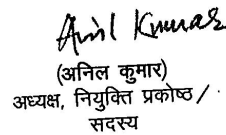 Anil Kumar
(अनिल कुमार)
अध्यक्ष, नियुक्ति प्रकोष्ठ /
सदस्य